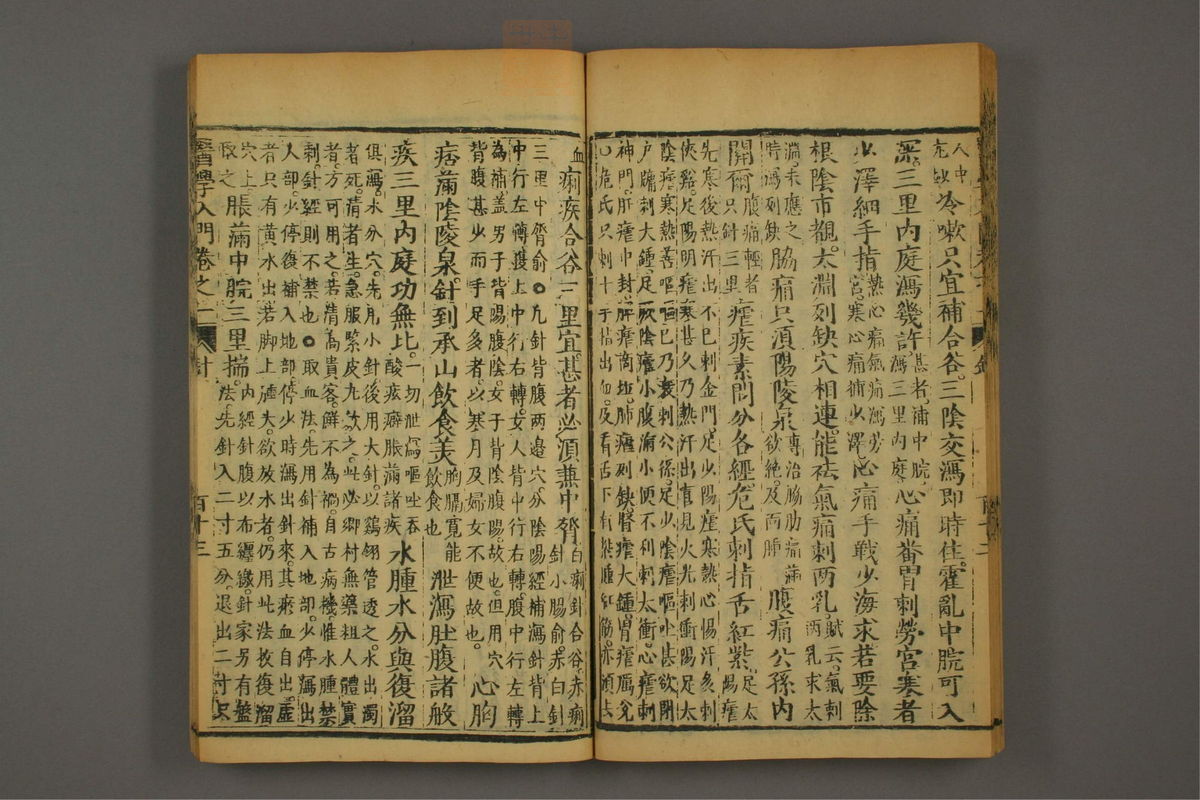 人中
尤妙
冷嗽只宜補合谷。三陰交瀉即時住。霍亂中脘可入
深。三里內庭瀉幾許
甚者。補中脘。
瀉三里內庭。
心痛番胃刺勞宮寒者
少澤細手指
熱心痛氣痛瀉勞
宮。寒心痛補少澤。
心痛手戰少海求若要除
根陰市覩。太淵列缺穴相連。能祛氣痛刺兩乳。
賦云。氣刺
兩乳求太
淵。未應之
時瀉列缺
脇痛只須陽陵泉
專治脇肋痛滿
欲絕及面腫
腹痛公孫內
關爾
腹痛輕者
只針三里
瘧疾素問分各經。危氏刺指舌紅紫
足太
陽瘧
先寒後熱汗出不已刺金門。足少陽瘧寒熱心惕汗多刺
俠谿。足陽明瘧寒甚久乃熱汗出喜見火光刺衝陽足太
陰瘧。寒熱善嘔嘔已乃衰刺公孫。足少陰瘧嘔吐甚欲閉
戶牖刺大鍾。足厥陰瘧小腹滿小便不利刺太衝。心瘧刺
神門。肝瘧中封。脾瘧商坵。肺瘧列缺腎瘧大鍾。胃瘧厲兌
○危氏只刺十手指出血。及看舌下有紫腫紅筋。亦須去
血
痢疾合谷三里宜。甚者必須兼中膂
白痢針合谷。赤痢
針小腸俞。赤白針
三里中膂俞○凡針背腹兩邊穴分陰陽經補瀉針背上
中行左轉腹上中行右轉。女人背中行右轉。腹中行左轉
為補。蓋男子背陽腹陰。女子背陰腹陽。故也。但用穴
背腹甚少而手足多者。以寒月及婦女不便故也。
心胸
痞滿陰陵泉。針到承山飲食美
胸膈寬能
飲食也
泄瀉肚腹諸般
疾三里內庭功無比。
一切泄瀉嘔吐吞
酸痃癖脹滿諸疾
水腫水分與復溜
俱瀉。水分穴。先用小針後用大針。以雞翎管透之。水出濁
者死。清者生。急服緊皮丸斂之。此必鄉村無藥粗人體實
者。方可用之。若清高貴客。鮮不為禍。自古病機。惟水腫禁
刺。針經則不禁也○取血法。先用針補入地部。少停瀉出
人部。少停復補入地部。停少時瀉出針來。其瘀血自出。虛
者只有黃水出。若腳上腫大。欲放水者。仍用此法於復溜
穴上
取之
脹滿中脘三里揣。
內經針腹以布纏繳。針家另有盤
法。先針入二寸五分。退出二寸只
醫學入門卷之一
針
百十三